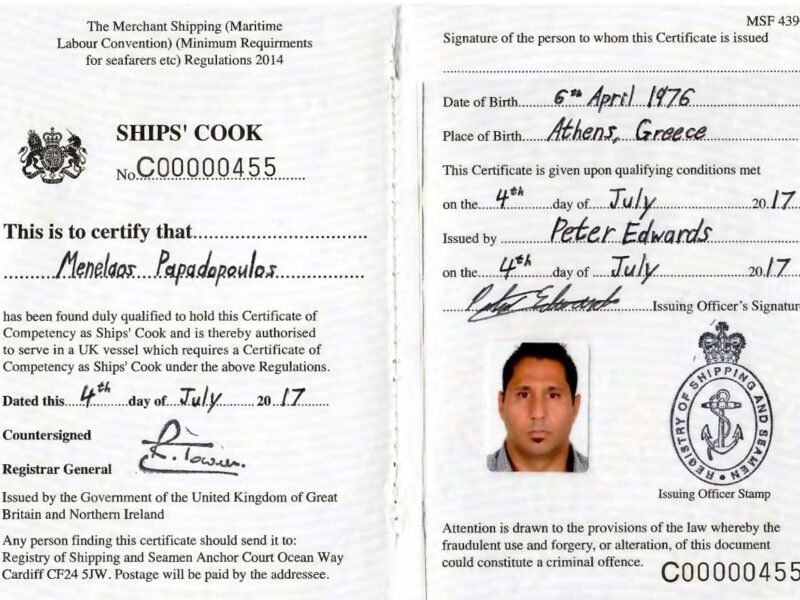 The Merchant Shipping (Maritime
Labour Convention) (Minimum Requirments
for seafarers etc) Regulations 2014
SHIPS' COOK
No. C00000455
This is to certify that
Menelaos Papadopoulos
has been found duly qualified to hold this Certificate of
Competency as Ships' Cook and is thereby authorised
to serve in a UK vessel which requires a Certificate of
Competency as Ships' Cook under the above Regulations.
Dated this 4th day of July 2017
Countersigned
Registrar General
Issued by the Government of the United Kingdom of Great
Britain and Northern Ireland
Any person finding this certificate should send it to:
Registry of Shipping and Seamen Anchor Court Ocean Way
Cardiff CF24 5JW. Postage will be paid by the addressee.
MSF 439
Signature of the person to whom this Certificate is issued
Date of Birth 6th April 1976
Place of Birth Athens, Greece
This Certificate is given upon qualifying conditions met
on the 4th day of July 2017
Issued by Peter Edwards
on the 4th day of July 2017
Peter Edwards Issuing Officer's Signatur
REGISTRY OF SHIPPING AND SEAMEN
Issuing Officer Stamp
Attention is drawn to the provisions of the law whereby the
fraudulent use and forgery, or alteration, of this document
could constitute a criminal offence.
C00000455